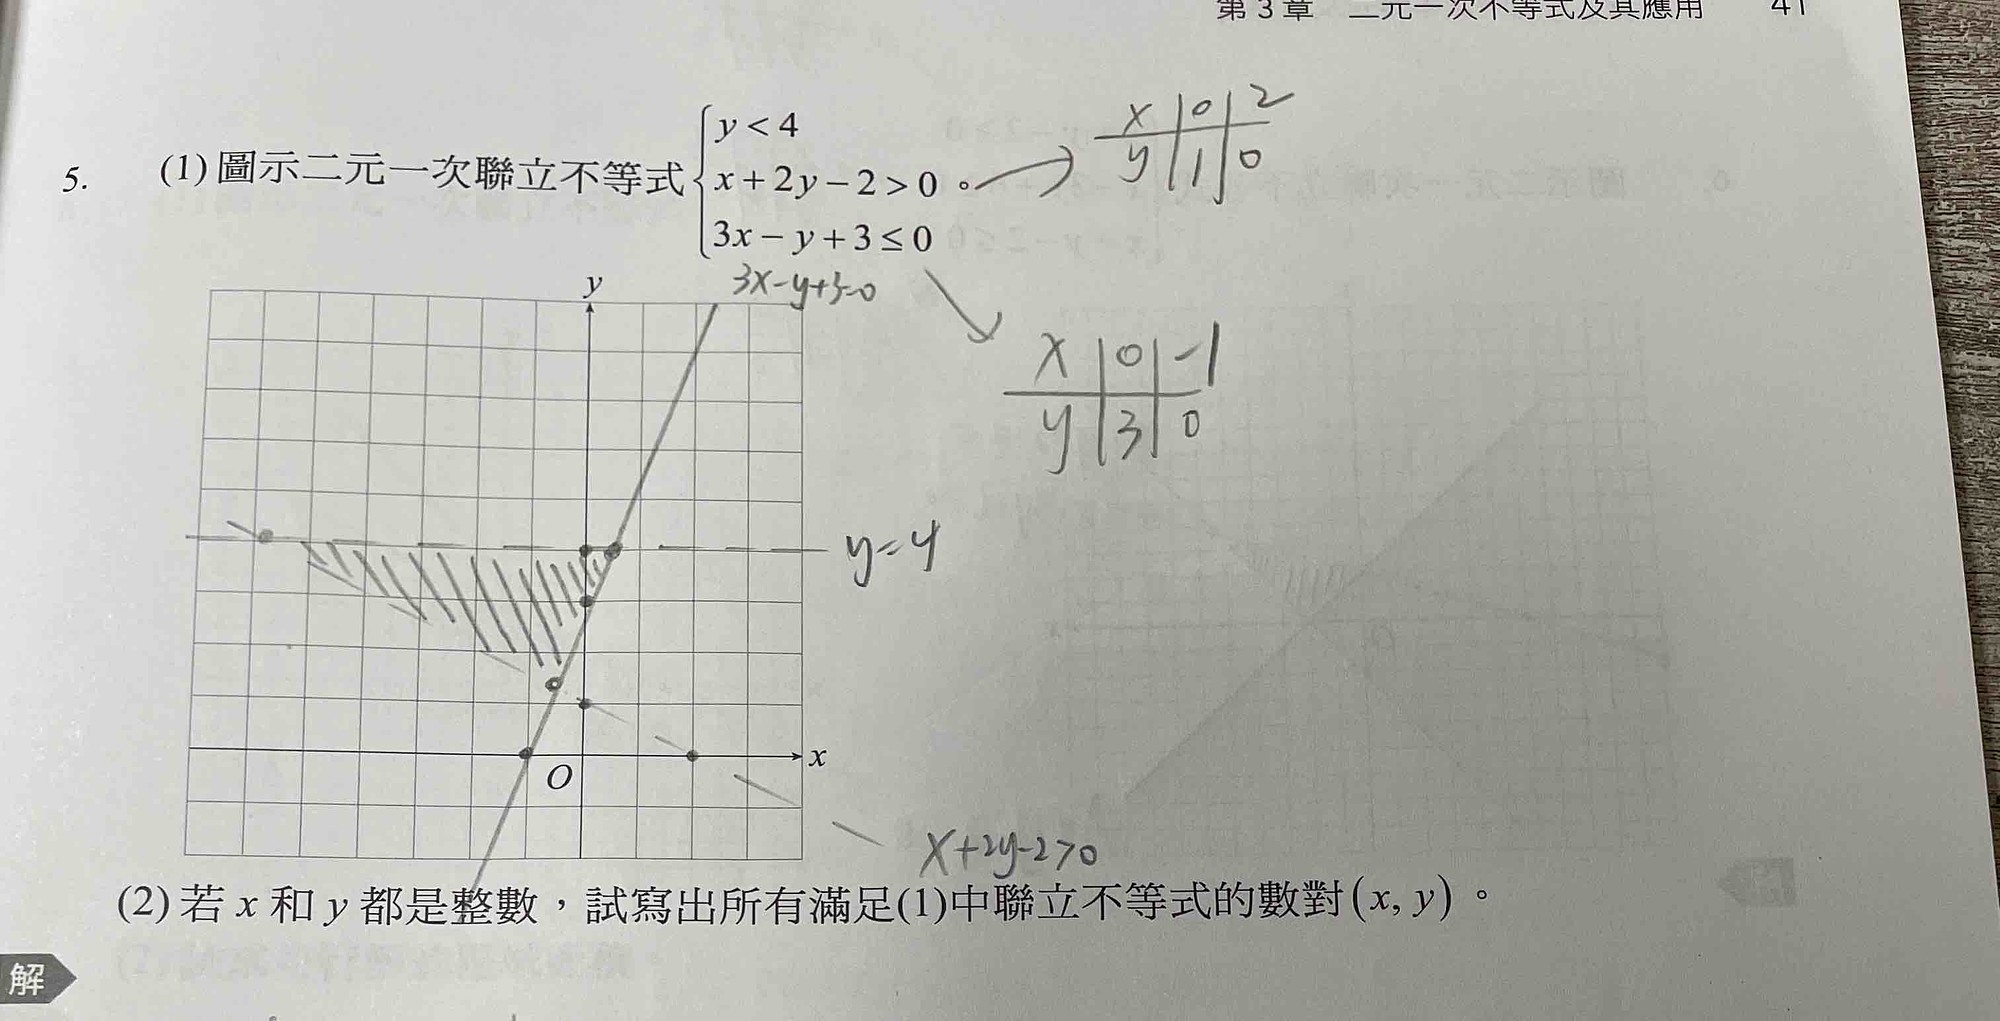 第 3 章 二元一次不等式及其應用 41
y < 4
5. (1) 圖示二元一次聯立不等式 x + 2y − 2 > 0 。
3x − y + 3 ≤ 0
x 0 2
y 1 0
3x-y+3=0
x 0 -1
y 3 0
y
y=4
x
O
x+2y-2>0
(2) 若 x 和 y 都是整數，試寫出所有滿足(1)中聯立不等式的數對(x, y) 。
解